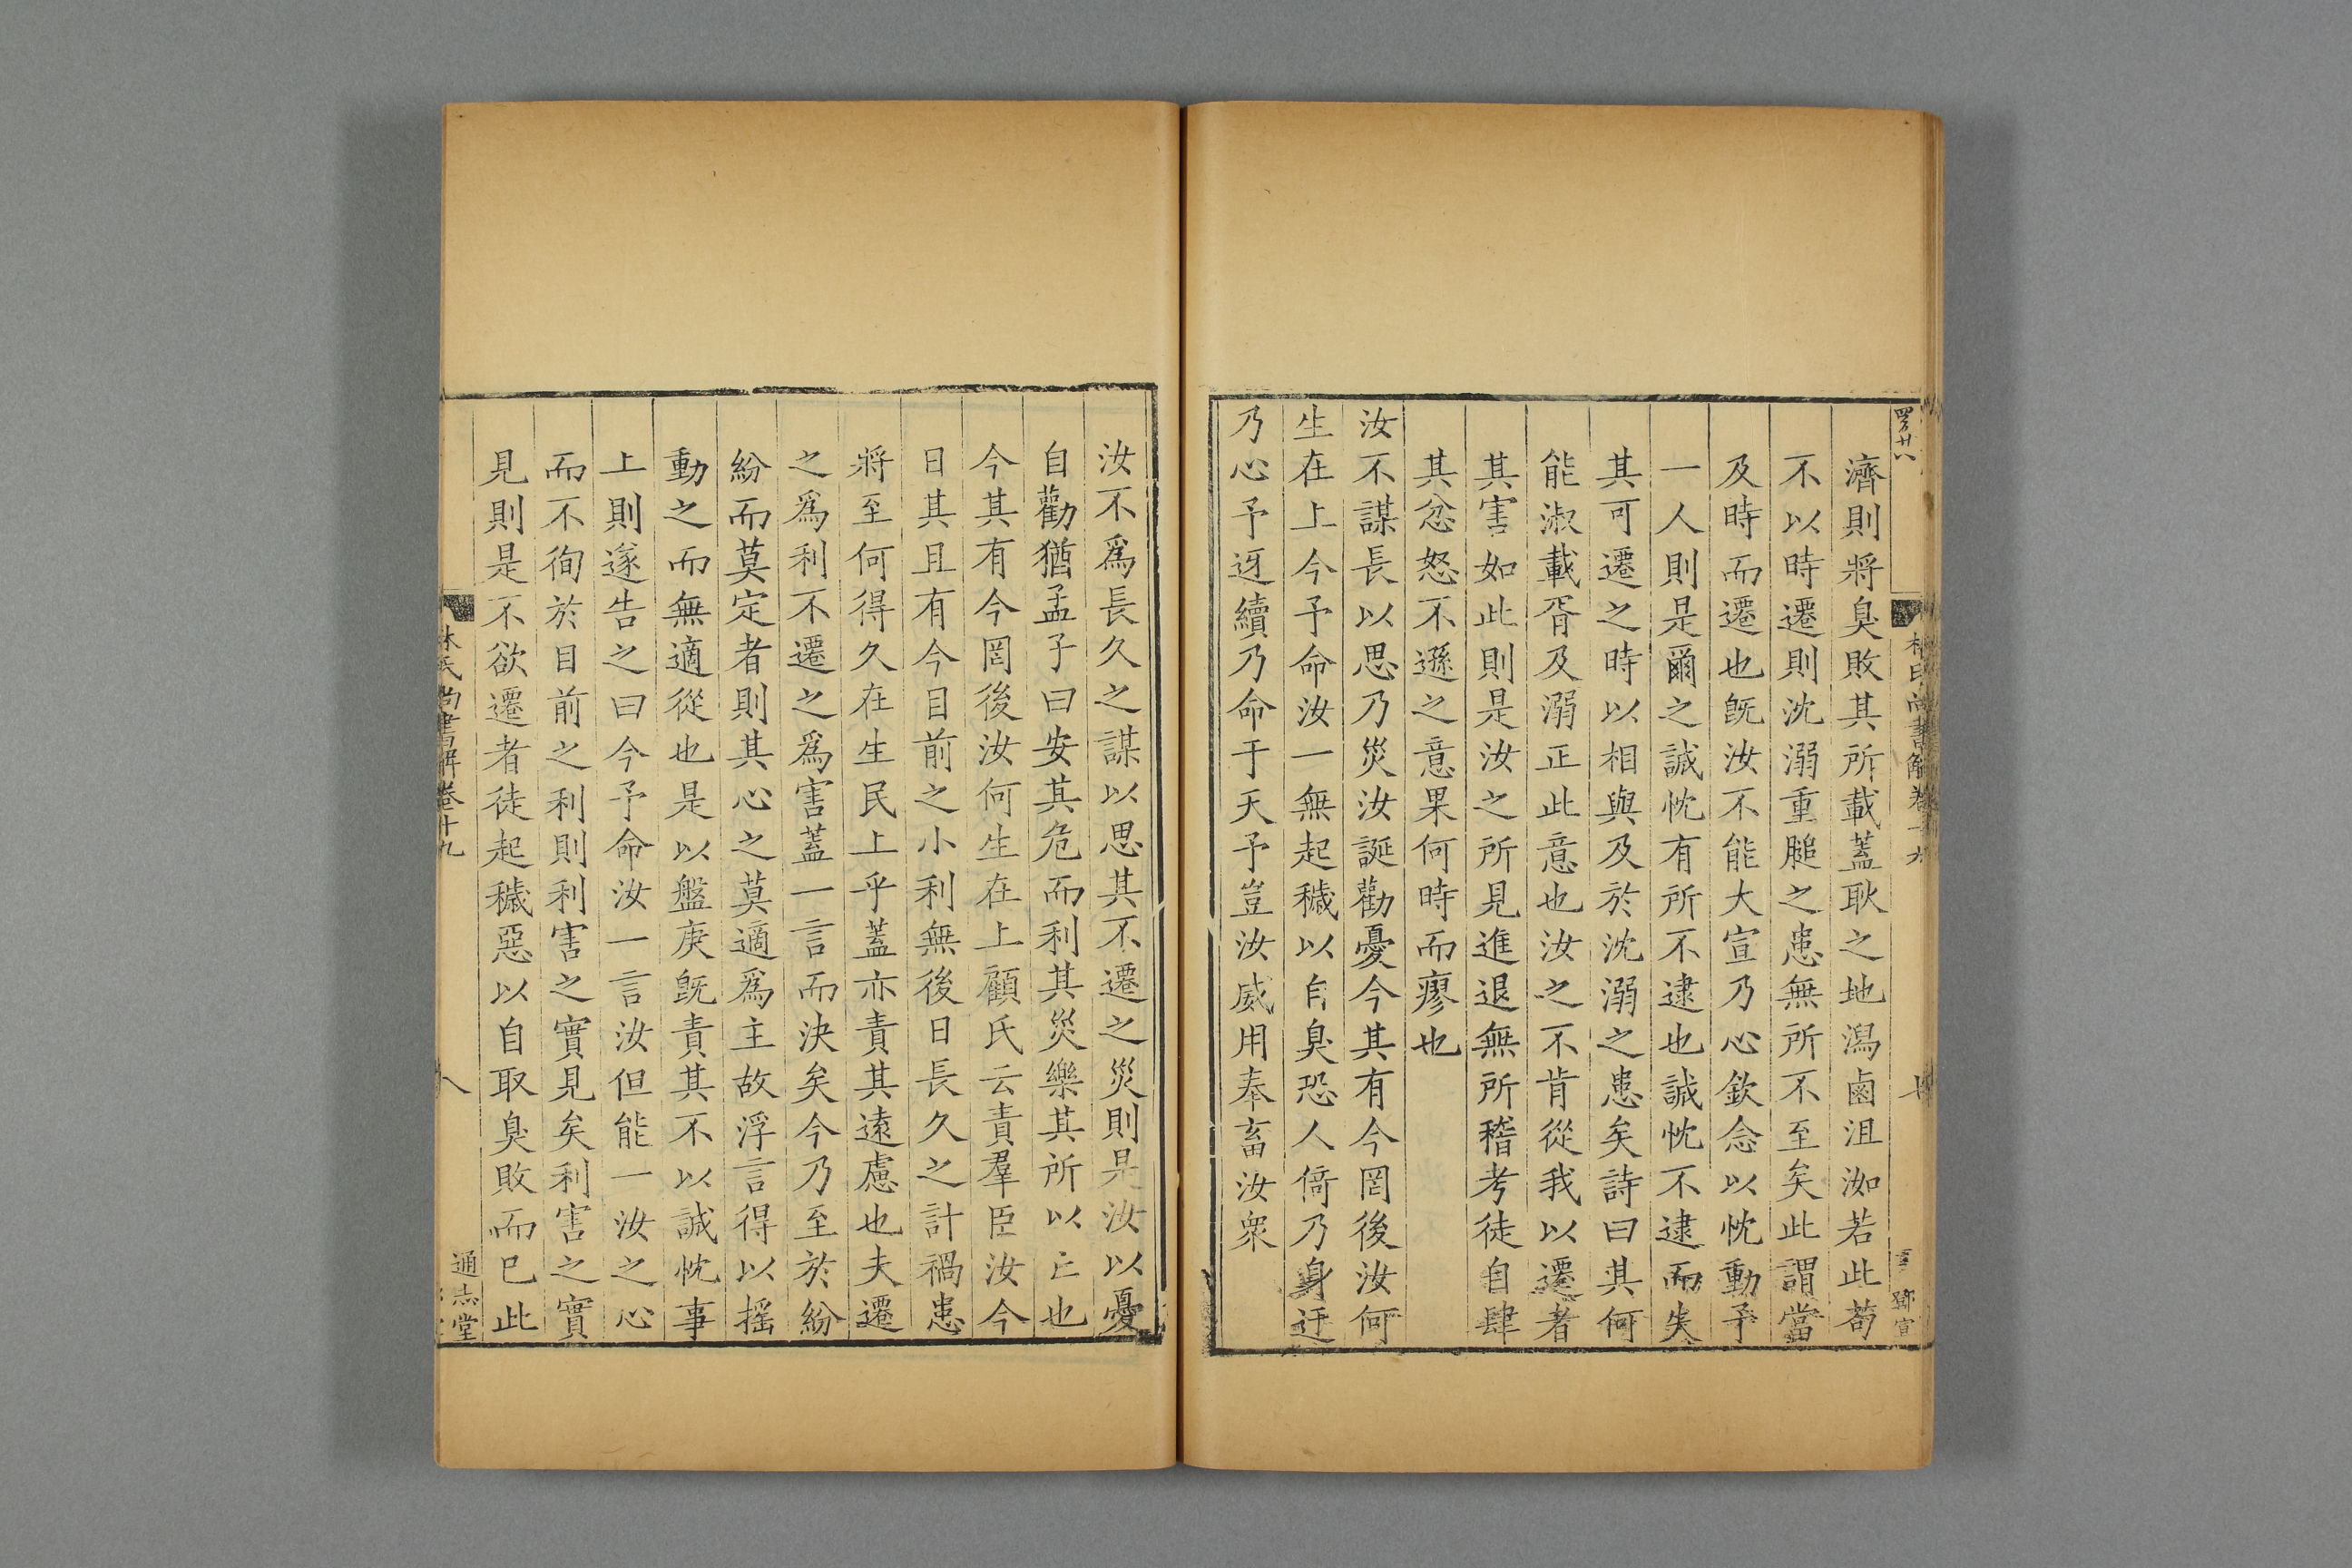 濟則將臭敗其所載蓋耿之地潟鹵沮洳若此苟
不以時遷則沈溺重膇之患無所不至矣此謂當
及時而遷也既汝不能大宣乃心欽念以忱動予
一人則是爾之誠忱有所不逮也誠忱不逮而失
其可遷之時以相與及於沈溺之患矣詩曰其何
能淑載胥及溺正此意也汝之不肯從我以遷者
其害如此則是汝之所見進退無所稽考徒自肆
其忿怒不遜之意果何時而瘳也
汝不謀長以思乃災汝誕勸憂今其有今罔後汝何
生在上今予命汝一無起穢以自臭恐人倚乃身迂
乃心予迓續乃命于天予豈汝威用奉畜汝衆
汝不爲長久之謀以思其不遷之災則是汝以憂
自勸猶孟子曰安其危而利其災樂其所以亡也
今其有今罔後汝何生在上顧氏云責羣臣汝今
日其且有今目前之小利無後日長久之計禍患
將至何得久在生民上乎蓋亦責其遠慮也夫遷
之爲利不遷之爲害蓋一言而決矣今乃至於紛
紛而莫定者則其心之莫適爲主故浮言得以摇
動之而無適從也是以盤庚既責其不以誠忱事
上則遂告之曰今予命汝一言汝但能一汝之心
而不徇於目前之利則利害之實見矣利害之實
見則是不欲遷者徒起穢惡以自取臭敗而已此
林氏尚書解卷十九
八
通志堂